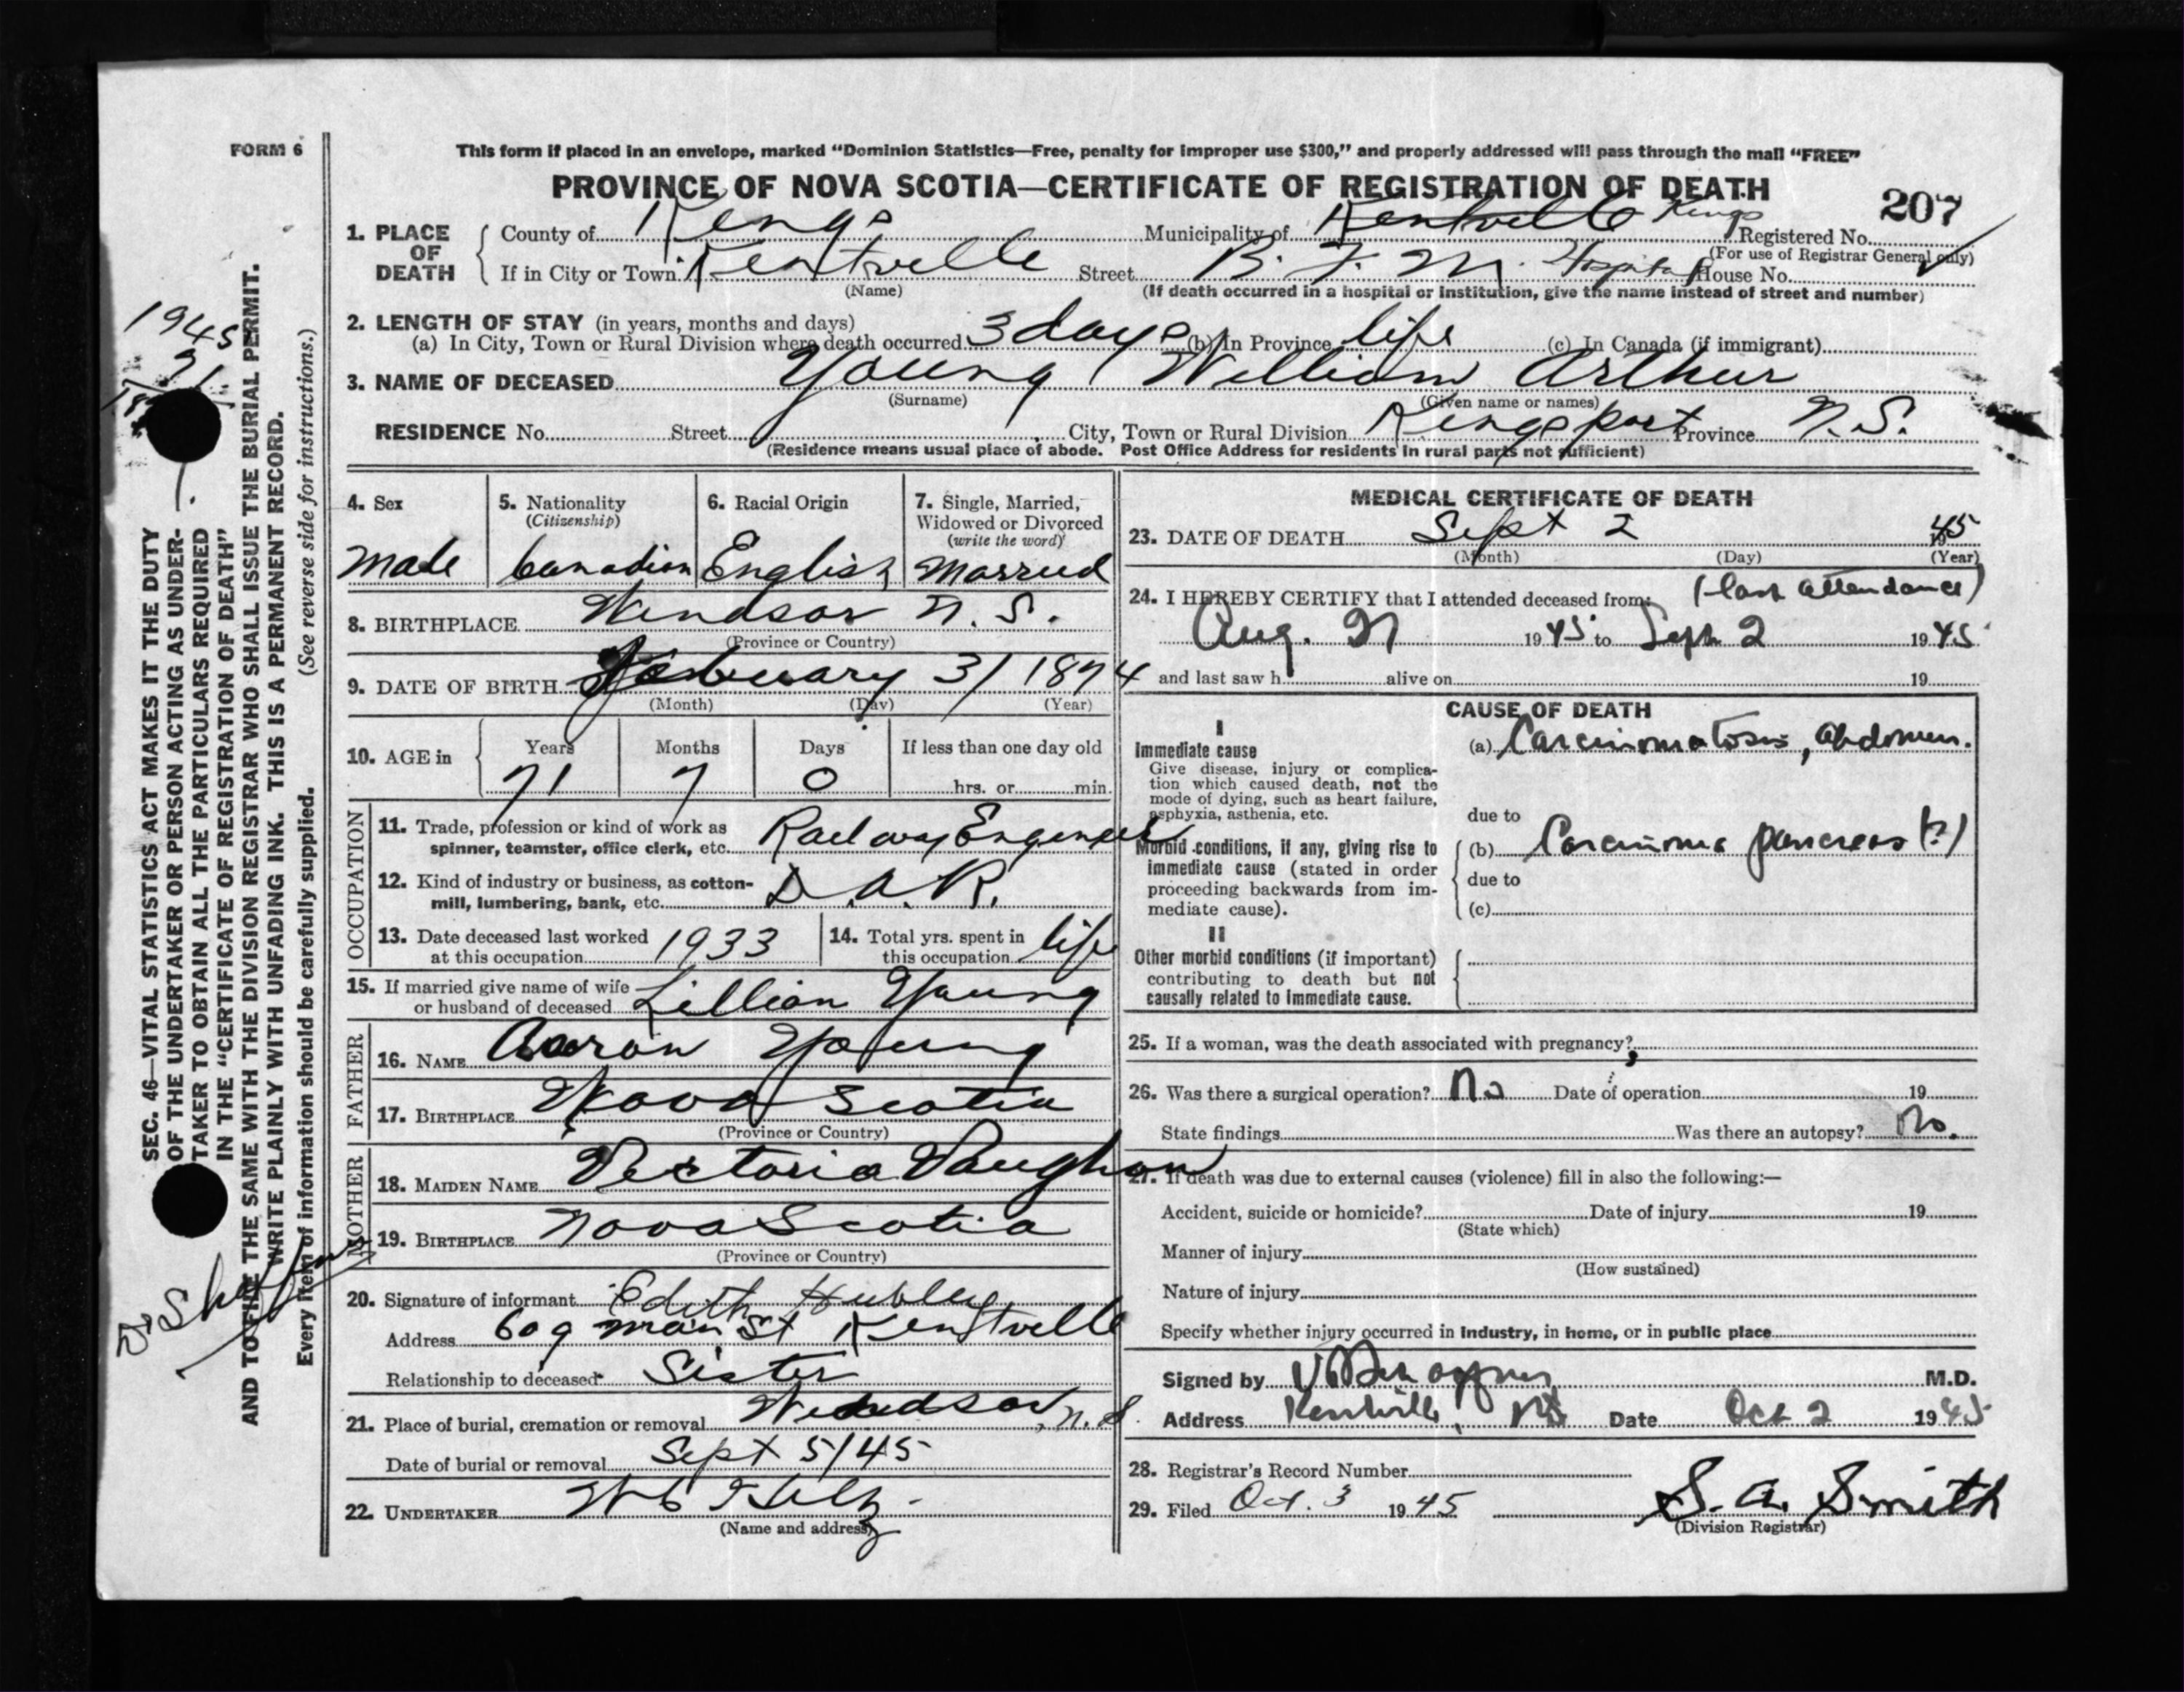 FORM 6
This form if placed in an envelope, marked “Dominion Statistics—Free, penalty for improper use $300,” and properly addressed will pass through the mail “FREE”
PROVINCE OF NOVA SCOTIA—CERTIFICATE OF REGISTRATION OF DEATH
207
1. PLACE OF DEATH
County of Kings Municipality of Kentville Kings Registered No.
(For use of Registrar General only)
If in City or Town Kentville Street B. F. M. Hospital House No.
(Name) (If death occurred in a hospital or institution, give the name instead of street and number)
2. LENGTH OF STAY (in years, months and days)
(a) In City, Town or Rural Division where death occurred 3 days (b) In Province life (c) In Canada (if immigrant)
3. NAME OF DECEASED Young William Arthur
(Surname) (Given name or names)
RESIDENCE No. Street City, Town or Rural Division Kingsport Province N.S.
(Residence means usual place of abode. Post Office Address for residents in rural parts not sufficient)
4. Sex male
5. Nationality (Citizenship) Canadian
6. Racial Origin English
7. Single, Married, Widowed or Divorced (write the word) Married
8. BIRTHPLACE Windsor N. S.
(Province or Country)
9. DATE OF BIRTH February 3/ 1874
(Month) (Day) (Year)
10. AGE in Years 71 Months 7 Days 0 If less than one day old hrs. or min.
OCCUPATION
11. Trade, profession or kind of work as spinner, teamster, office clerk, etc. Railway Engineer
12. Kind of industry or business, as cotton-mill, lumbering, bank, etc. D. A. R.
13. Date deceased last worked at this occupation 1933
14. Total yrs. spent in this occupation life
15. If married give name of wife or husband of deceased Lillian Young
FATHER
16. NAME Aaron Young
17. BIRTHPLACE Nova Scotia
(Province or Country)
MOTHER
18. MAIDEN NAME Victoria Vaughan
19. BIRTHPLACE Nova Scotia
(Province or Country)
20. Signature of informant Edith Hubley
Address 609 Main St Kentville
Relationship to deceased Sister
21. Place of burial, cremation or removal Windsor, N. S.
Date of burial or removal Sept 5/45
22. UNDERTAKER
(Name and address)
MEDICAL CERTIFICATE OF DEATH
23. DATE OF DEATH Sept 2 1945
(Month) (Day) (Year)
24. I HEREBY CERTIFY that I attended deceased from: (last attendance)
Aug. 1945 to Sept 2 1945
and last saw h alive on 19
CAUSE OF DEATH
I
Immediate cause
Give disease, injury or complication which caused death, not the mode of dying, such as heart failure, asphyxia, asthenia, etc.
(a) Carcinomatosis, Abdomen.
due to
Morbid conditions, if any, giving rise to immediate cause (stated in order proceeding backwards from immediate cause).
(b) Carcinoma pancreas (?)
due to
(c)
II
Other morbid conditions (if important) contributing to death but not causally related to immediate cause.
25. If a woman, was the death associated with pregnancy?
26. Was there a surgical operation? No Date of operation 19
State findings Was there an autopsy? No.
27. If death was due to external causes (violence) fill in also the following:—
Accident, suicide or homicide? Date of injury 19
(State which)
Manner of injury
(How sustained)
Nature of injury
Specify whether injury occurred in industry, in home, or in public place
Signed by M.D.
Address Kentville, NS Date Oct 2 1945
28. Registrar's Record Number
29. Filed Oct. 3 1945 S. A. Smith
(Division Registrar)
SEC. 46—VITAL STATISTICS ACT MAKES IT THE DUTY
OF THE UNDERTAKER OR PERSON ACTING AS UNDER-
TAKER TO OBTAIN ALL THE PARTICULARS REQUIRED
IN THE “CERTIFICATE OF REGISTRATION OF DEATH”
AND TO FILE THE SAME WITH THE DIVISION REGISTRAR WHO SHALL ISSUE THE BURIAL PERMIT.
WRITE PLAINLY WITH UNFADING INK. THIS IS A PERMANENT RECORD.
Every item of information should be carefully supplied. (See reverse side for instructions.)
1945